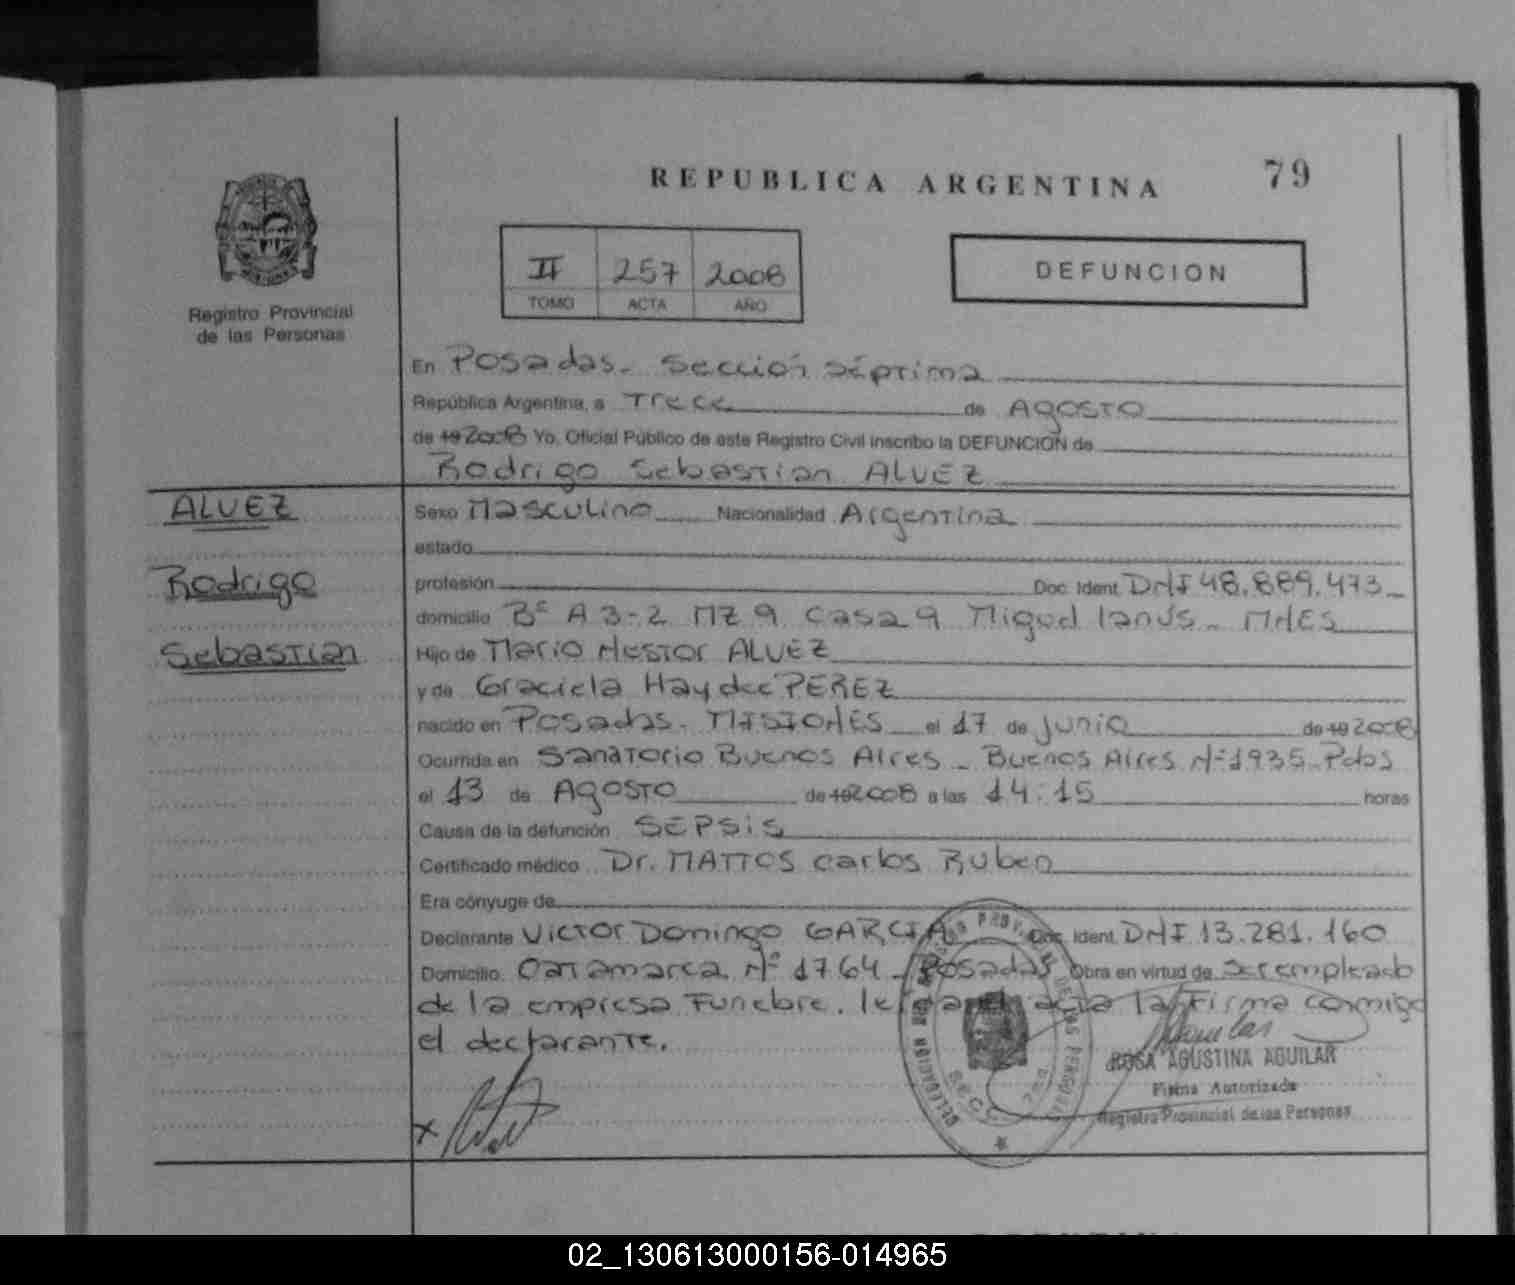 REPUBLICA ARGENTINA
79
II 257 2008
TOMO ACTA AÑO
DEFUNCION
Registro Provincial
de las Personas
En Posadas - Sección séptima
República Argentina, a Trece de Agosto
de 19 2008 Yo, Oficial Público de este Registro Civil inscribo la DEFUNCION de
Rodrigo Sebastian ALVEZ
ALVEZ
Rodrigo
Sebastian
Sexo Masculino Nacionalidad Argentina
estado
profesión Doc. Ident. DNI 48.889.473
domicilio Bº A 3-2 MZ 9 Casa 9 Miguel Lanús - MNES
Hijo de Mario Nestor ALVEZ
y de Graciela Haydee PEREZ
nacido en Posadas - MISIONES el 17 de junio de 19 2008
Ocurrida en Sanatorio Buenos Aires - Buenos Aires Nº 1935 - Pdas
el 13 de Agosto de 19 2008 a las 14:15 horas
Causa de la defunción SEPSIS
Certificado médico Dr. MATTOS Carlos Ruben
Era cónyuge de
Declarante Victor Domingo GARCIA Doc. Ident. DNI 13.281.160
Domicilio Catamarca Nº 1764 - Posadas Obra en virtud de ser empleado
de la empresa Funebre. leída el acta la firma conmigo
el declarante.
ROSA AGUSTINA AGUILAR
Firma Autorizada
Registro Provincial de las Personas
02_130613000156-014965